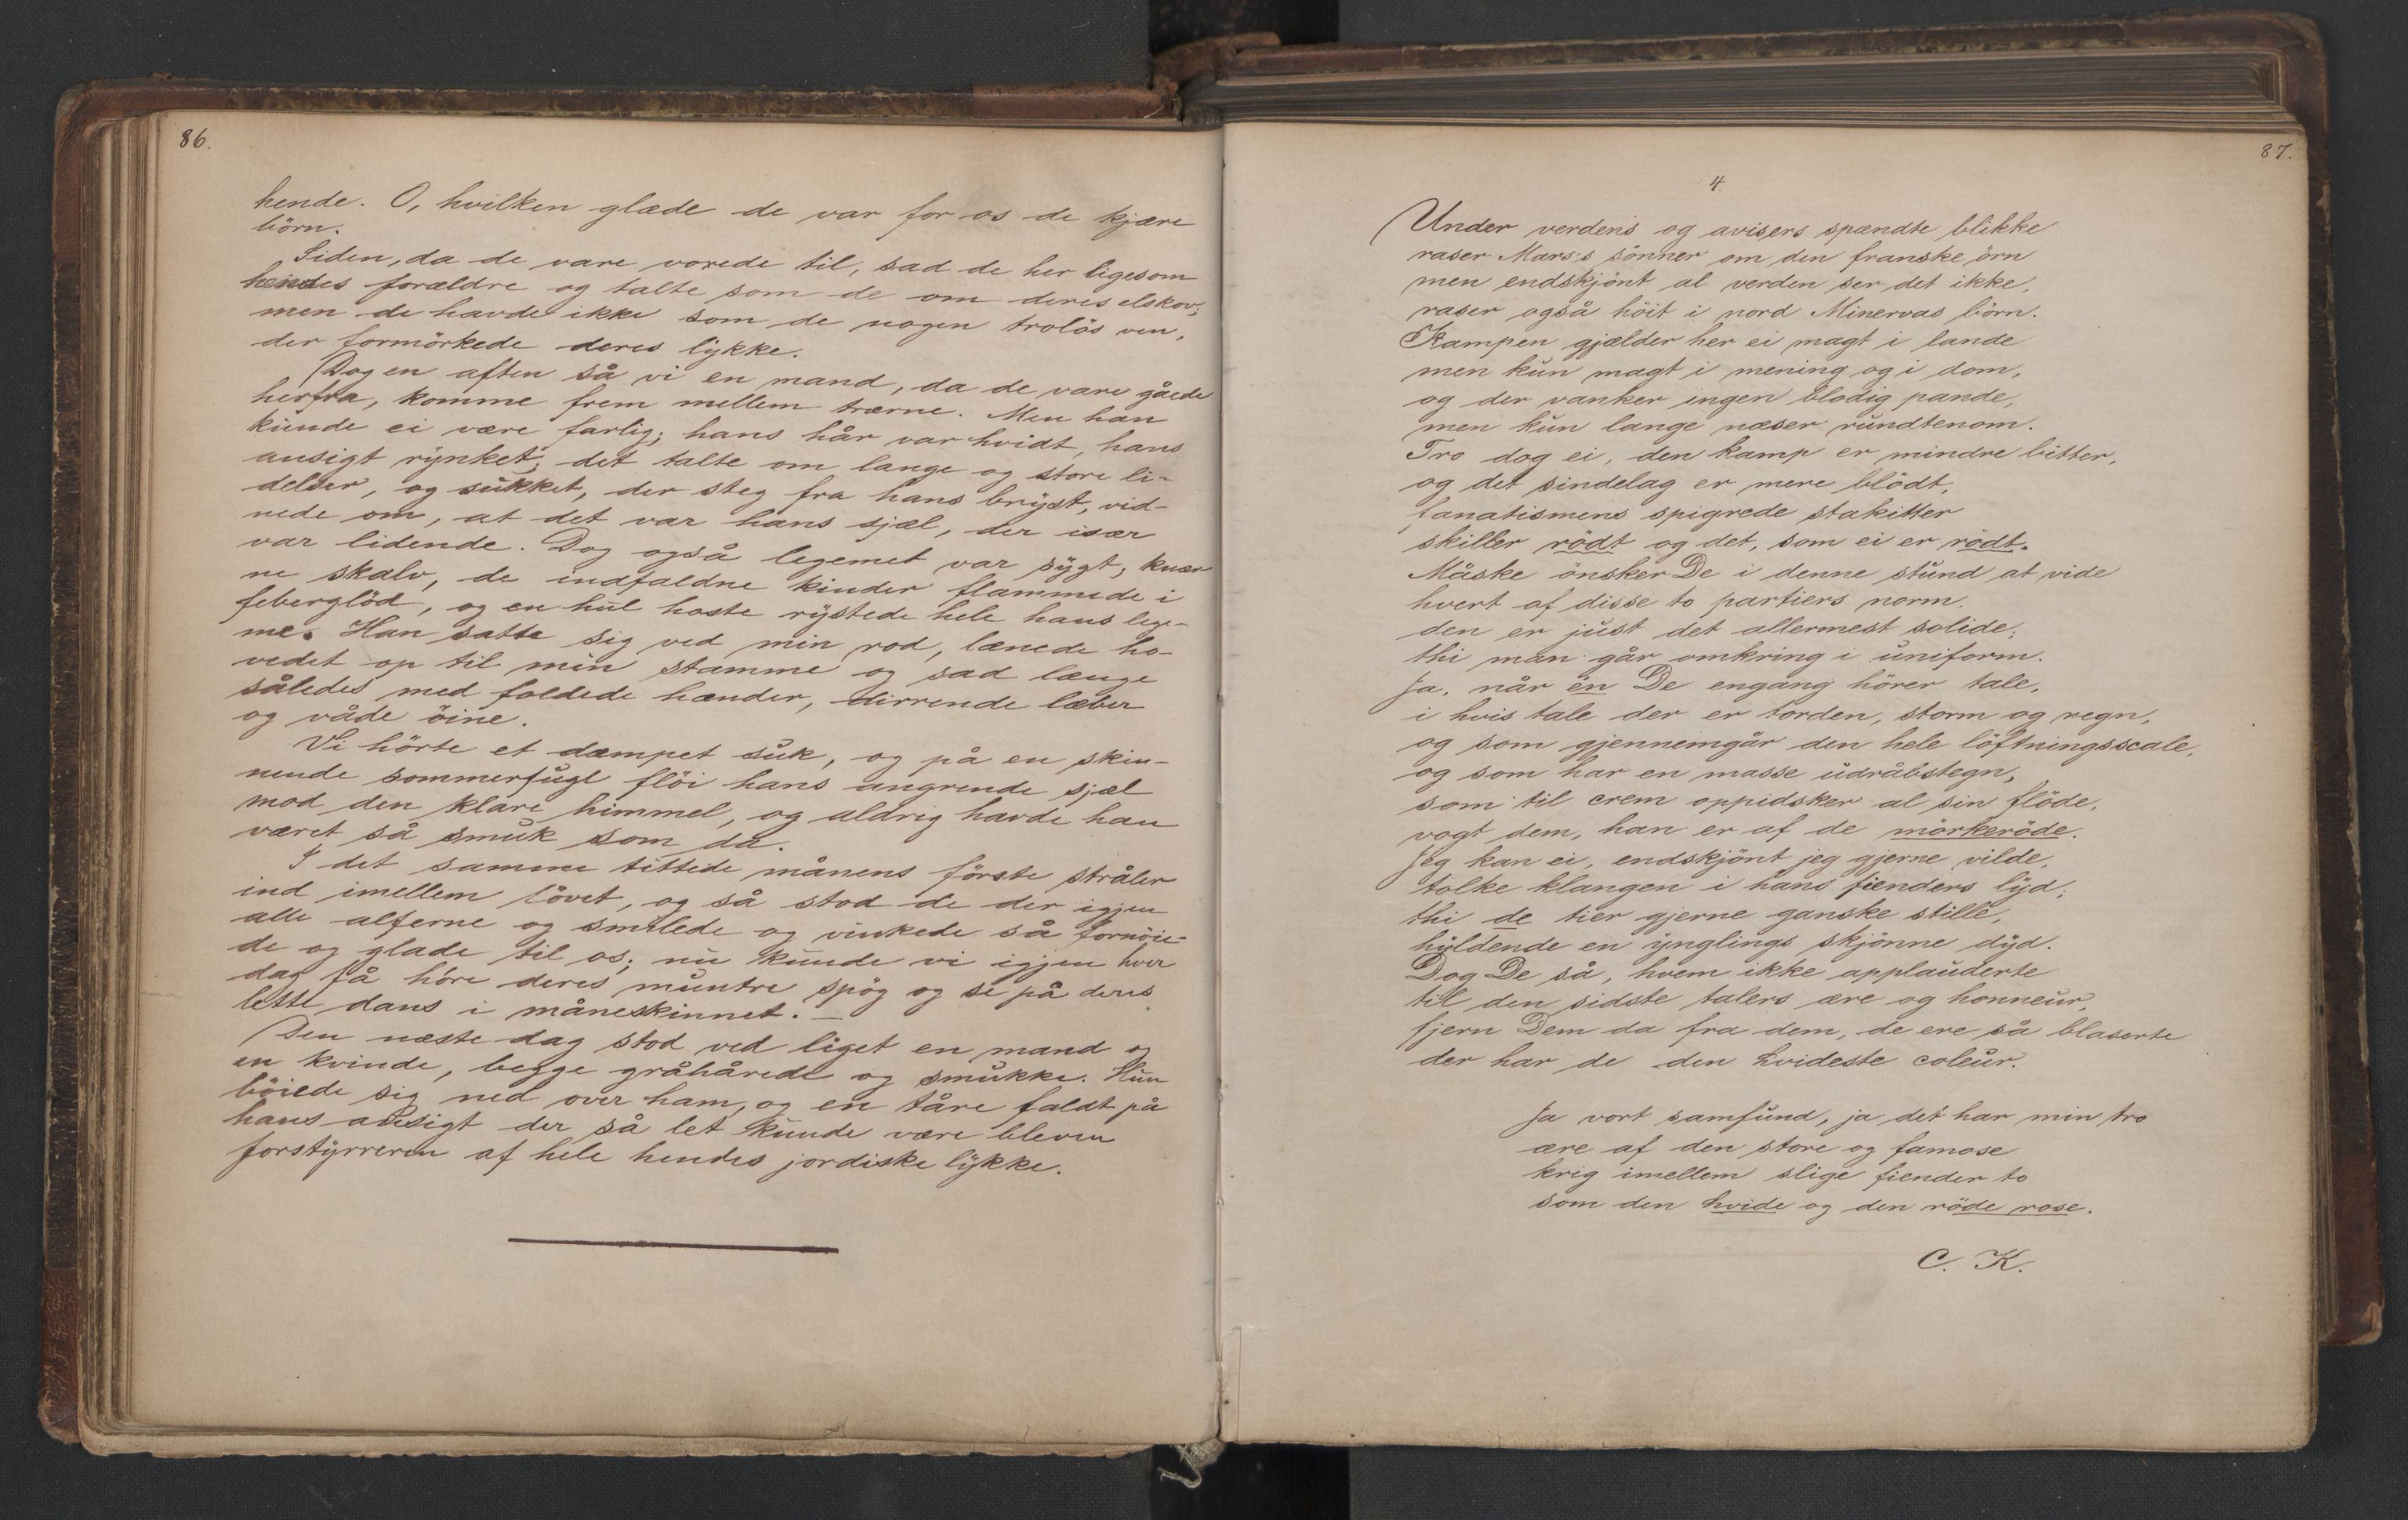 86.
hende. O, hvilken glæde de var for os de kjære
börn.
Siden, da de vare vorede til, sad de her ligesom
hendes forældre og talte som de om deres elskov;
men de havde ikke som de nogen trolös ven,
der formörkede deres lykke.
Dog en aften så vi en mand, da de vare gåede
herfra, komme frem mellem trærne. Men han
kunde ei være farlig; hans hår var hvidt, hans
ansigt rynket; det talte om lange og store li-
delser, og sukket, der steg fra hans bryst, vid-
nede om, at det var hans sjæl, der især
var lidende. Dog også legemet var sygt; knær
ne skalv, de indfaldne kinder flammede i
feberglöd, og en hul hoste rystede hele hans lege-
me. Han satte sig ved min rod, lænede ho-
vedet op til min stamme og sad længe
således med foldede hænder, dirrende læber
og våde öine.
Vi hörte et dæmpet suk, og på en skin-
nende sommerfugl flöi hans angrende sjæl
mod den klare himmel, og aldrig havde han
været så smuk som da.
I det samme tittede månens förste stråler
ind imellem lövet, og så stod de der igjen
alle alferne og smilede og vinkede så fornöie-
de og glade til os; nu kunde vi igjen hver
dag få höre deres muntre spög og se på deres
lette dans i måneskinnet. —
Den næste dag stod ved liget en mand og
en kvinde, begge gråhårede og smukke. Hun
böiede sig ned over ham, og en tåre faldt på
hans ansigt der så let kunde være bleven
forstyrreren af hele hendes jordiske lykke.
87.
4.
Under verdens og avisers spændte blikke
raser Mars's sönner om den franske örn
men endskjönt al verden ser det ikke,
raser også höit i nord Minervas börn.
Kampen gjælder her ei magt i lande
men kun magt i mening og i dom,
og der vanker ingen blodig pande,
men kun lange næser rundtenom.
Tro dog ei, den kamp er mindre bitter,
og det sindelag er mere blödt,
fanatismens spigrede stakitter
skiller rödt og det, som ei er rödt.
Måske önsker De i denne stund at vide
hvert af disse to partiers norm,
den er just det allermest solide;
thi man går omkring i uniform.
Ja, når én De engang hörer tale,
i hvis tale der er torden, storm og regn,
og som gjennemgår den hele löftningsscale,
og som har en masse udråbstegn,
som til crem oppidsker al sin flöde,
vogt dem, han er af de mörkeröde.
Jeg kan ei, endskjönt jeg gjerne vilde,
tolke klangen i hans fienders lyd;
thi de tier gjerne ganske stille,
hyldende en ynglings skjönne dyd.
Dog De så, hvem ikke applauderte
til den sidste talers ære og honneur,
fjern Dem da fra dem, de ere så blaserte
der har de den hvideste coleur.
Ja vort samfund, ja det har min tro
ære af den store og famose
krig imellem slige fiender to
som den hvide og den röde rose.
C. K.